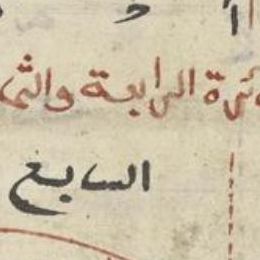 ئرة الرابعة والثما
السابع